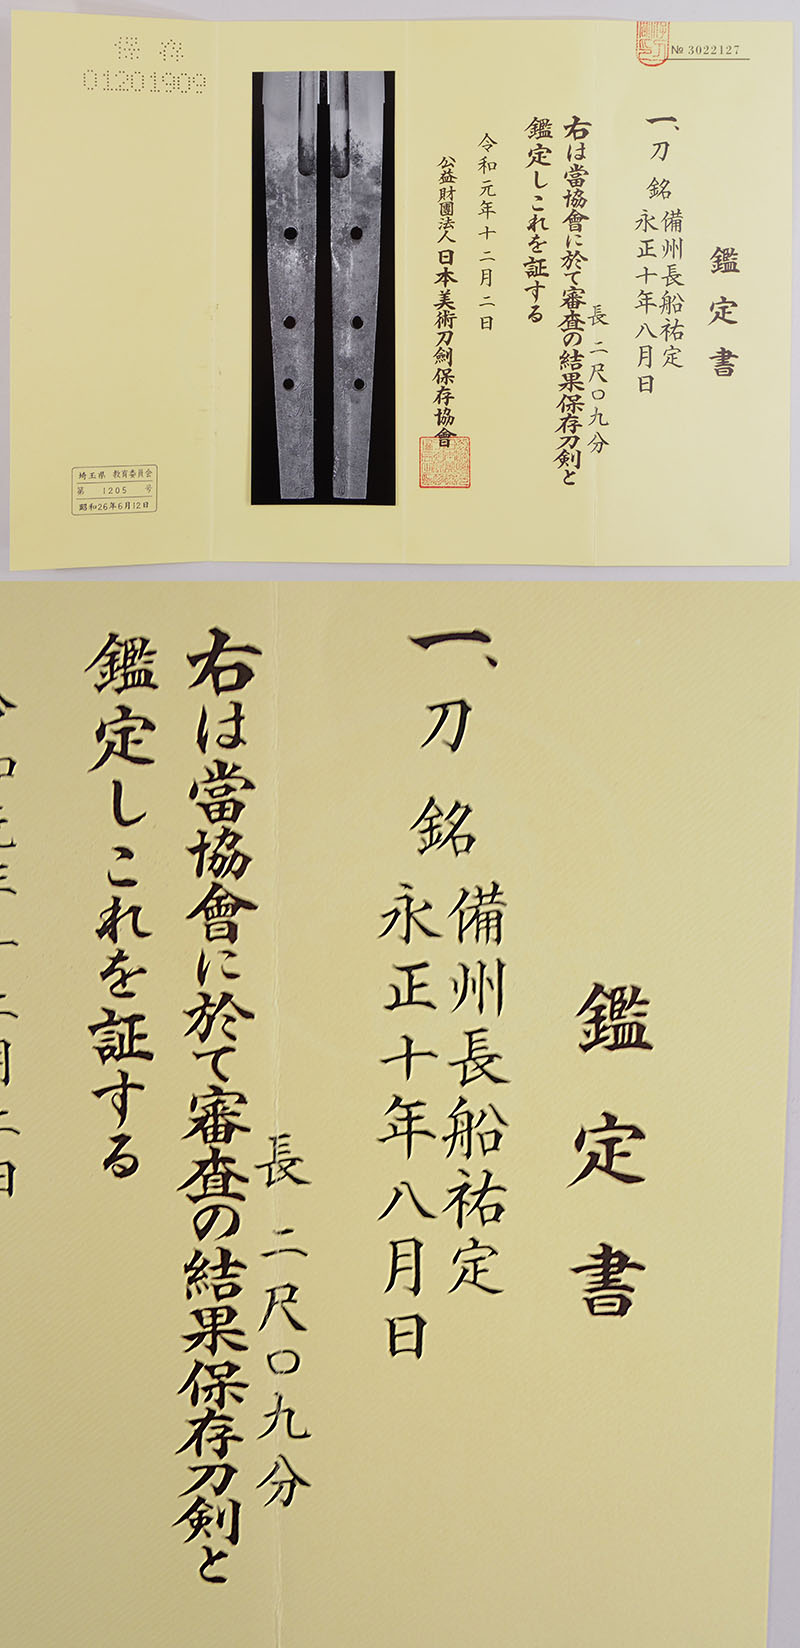 № 3022127
鑑定書
一、刀 銘 備州長船祐定
永正十年八月日
長 二尺〇九分
右は當協會に於て審査の結果保存刀剣と
鑑定しこれを証する
令和元年十二月二日
公益財團法人 日本美術刀劍保存協會
保存
01201909
埼玉県 教育委員会
第 1205 号
昭和26年6月12日
鑑定書
一、刀 銘 備州長船祐定
永正十年八月日
長 二尺〇九分
右は當協會に於て審査の結果保存刀剣と
鑑定しこれを証する
令和元年十二月二日